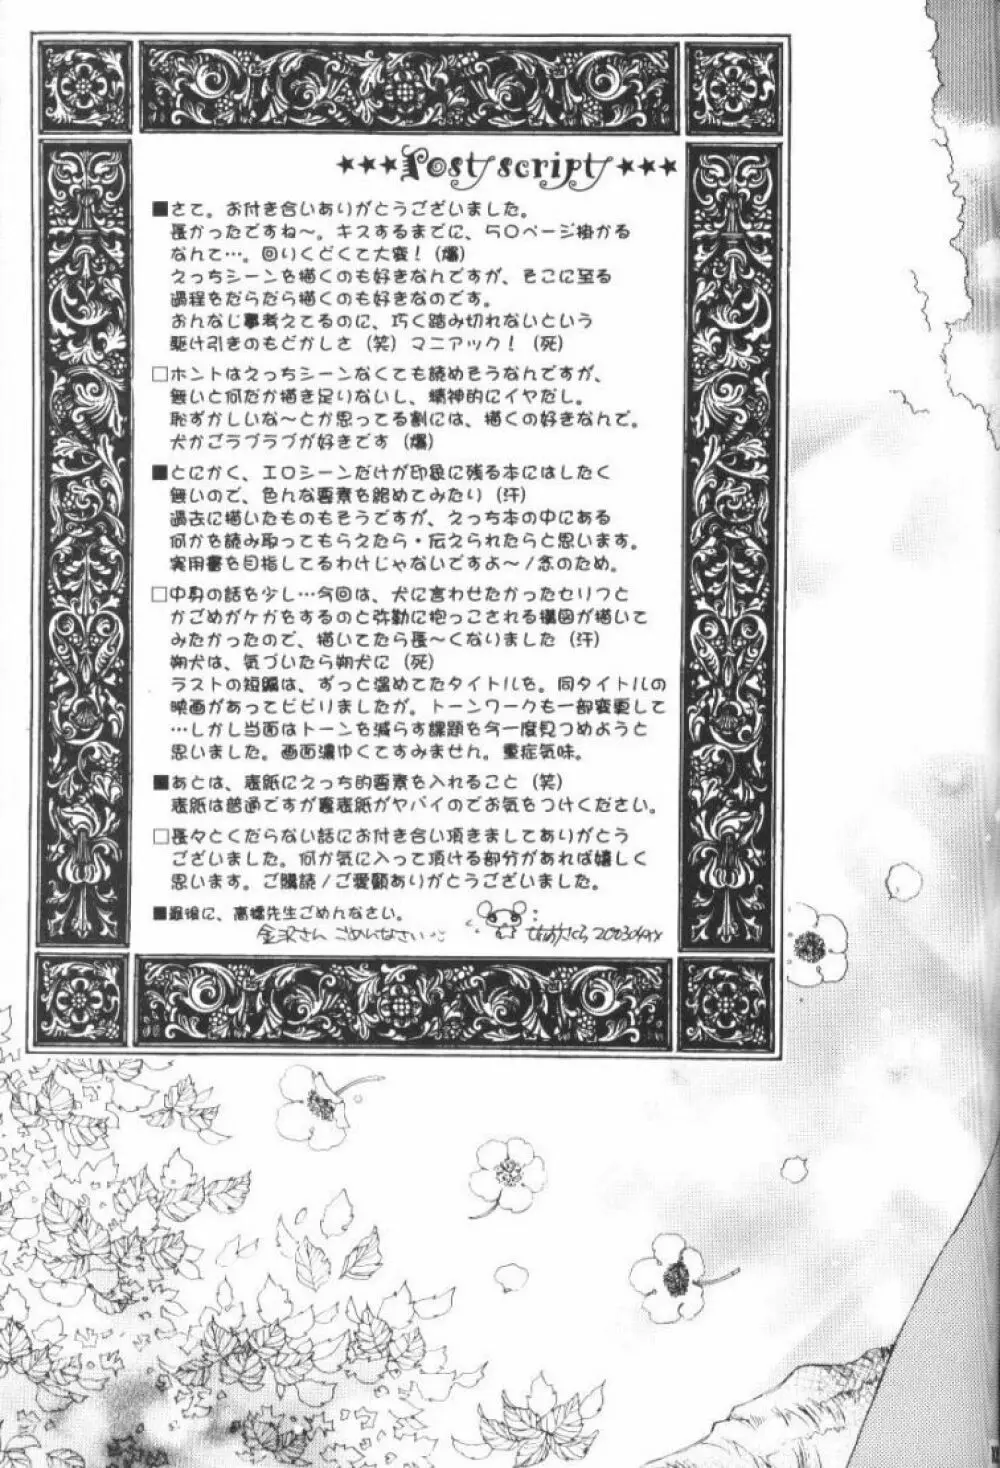 ★★★Post script★★★
■さて。お付き合いありがとうございました。
長かったですね～。キスするまでに、50ページ掛かる
なんて…。回りくどくて大変！(爆)
えっちシーンを描くのも好きなんですが、そこに至る
過程をだらだら描くのも好きなのです。
おんなじ事考えてるのに、巧く踏み切れないという
駆け引きのもどかしさ（笑）マニアック！（死）
□ホントはえっちシーンなくても読めそうなんですが、
無いと何だか描き足りないし、精神的にイヤだし。
恥ずかしいな～とか思ってる割には、描くの好きなんで。
犬かごラブラブが好きです（爆）
■とにかく、エロシーンだけが印象に残る本にはしたく
無いので、色んな要素を絡めてみたり（汗）
過去に描いたものもそうですが、えっち本の中にある
何かを読み取ってもらえたら・伝えられたらと思います。
実用書を目指してるわけじゃないですよ～/念のため。
□中身の話を少し…今回は、犬に言わせたかったセリフと
かごめがケガをするのと弥勒に抱っこされる構図が描いて
みたかったので、描いてたら長～くなりました（汗）
朔犬は、気づいたら朔犬に（死）
ラストの短編は、ずっと温めてたタイトルを。同タイトルの
映画があってビビりましたが。トーンワークも一部変更して
…しかし当面はトーンを減らす課題を今一度見つめようと
思いました。画面濃ゆくてすみません。重症気味。
■あとは、表紙にえっち的要素を入れること（笑）
表紙は普通ですが裏表紙がヤバイのでお気をつけください。
□長々とくだらない話にお付き合い頂きましてありがとう
ございました。何か気に入って頂ける部分があれば嬉しく
思います。ご購読/ご愛顧ありがとうございました。
■最後に、高橋先生ごめんなさい。
金沢さん ごめんなさい